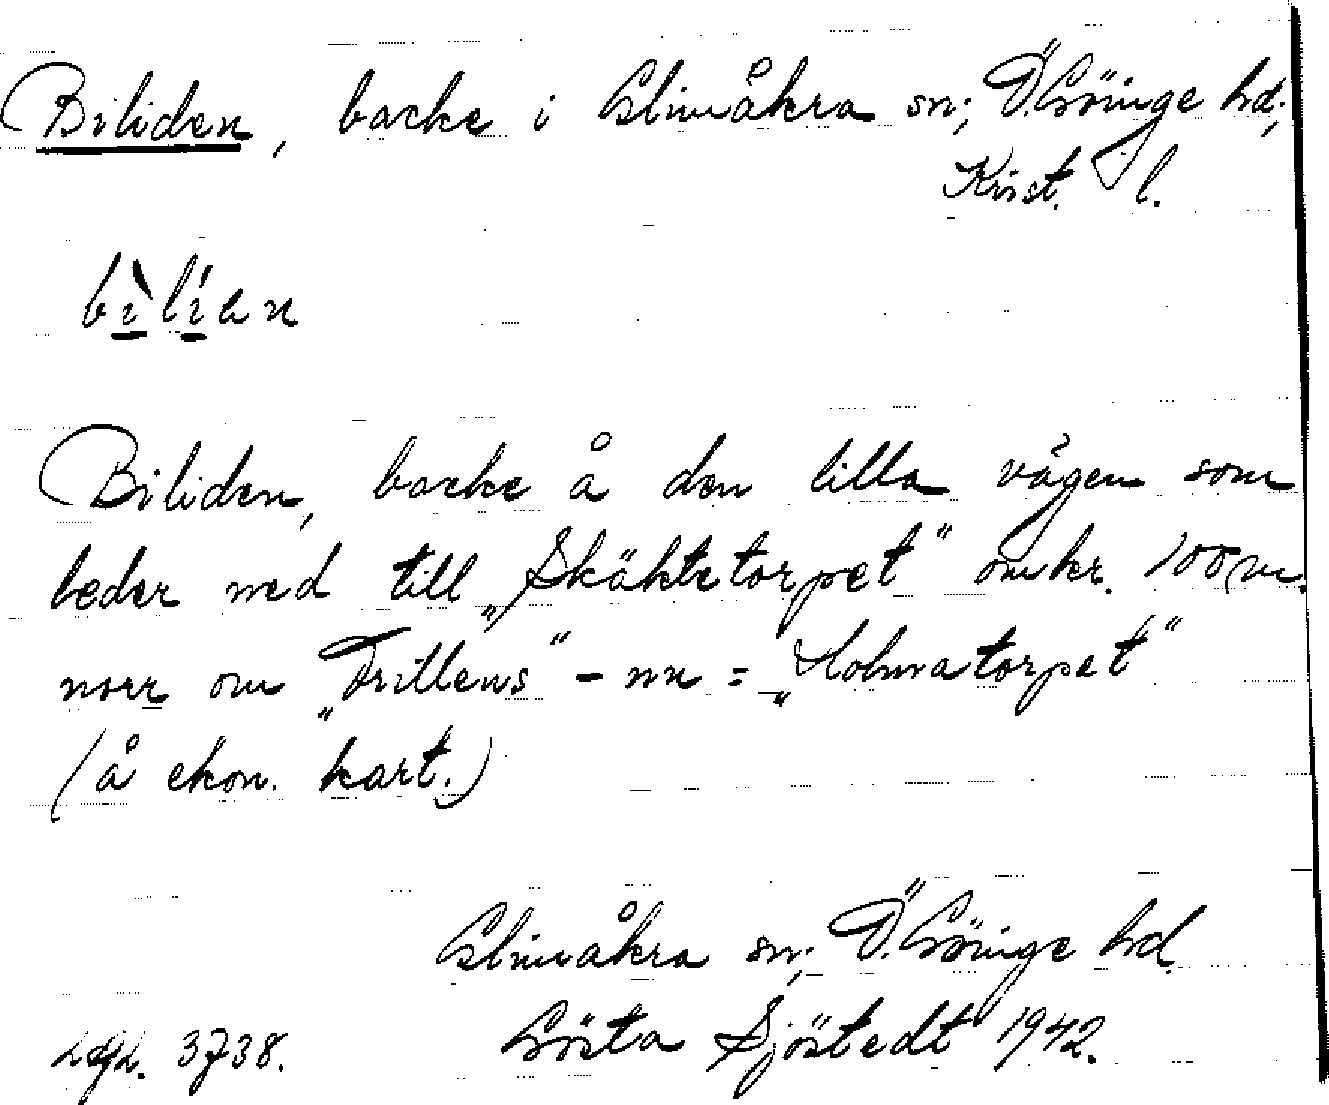 Biliden, backe i Glimåkra sn; Ö. Göinge hd;
Krist. l.
bìlían
Biliden, backe å den lilla vägen som
leder ned till „Skäktetorpet” omkr. 100 m.
norr om „Trillens” - nu = „Holmatorpet”
(å ekon. kart.)
Glimåkra sn; Ö. Göinge hd.
3738. Gösta Sjöstedt 1942.